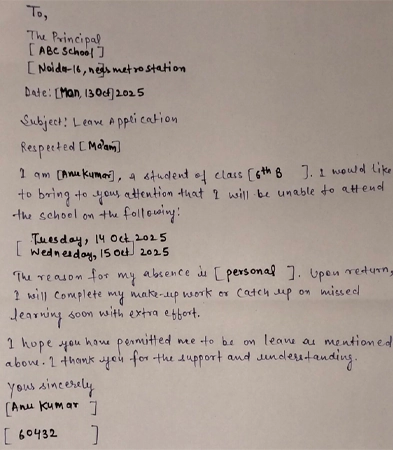 To,
The Principal
[ ABC School ]
[ Noida-16, near metro station
Date: [Mon, 13 Oct] 2025
Subject: Leave Application
Respected [Ma'am]
I am [Anu Kumar], a student of class [6th B ]. I would like
to bring to your attention that I will be unable to attend
the school on the following:
[ Tuesday, 14 Oct 2025
Wednesday, 15 Oct ] 2025
The reason for my absence is [ personal ]. Upon return,
I will complete my make-up work or catch up on missed
learning soon with extra effort.
I hope you have permitted me to be on leave as mentioned
above. I thank you for the support and understanding.
Yours sincerely
[Anu Kumar ]
[ 60432 ]